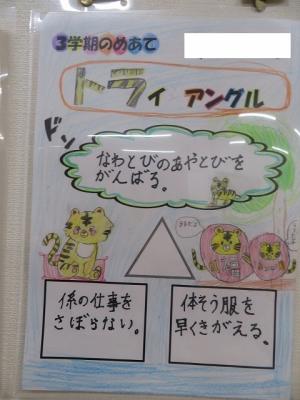 3学期のめあて
トライ アングル
ドン
なわとびのあやとびを
がんばる。
係の仕事を
さぼらない。
体そう服を
早くきがえる。